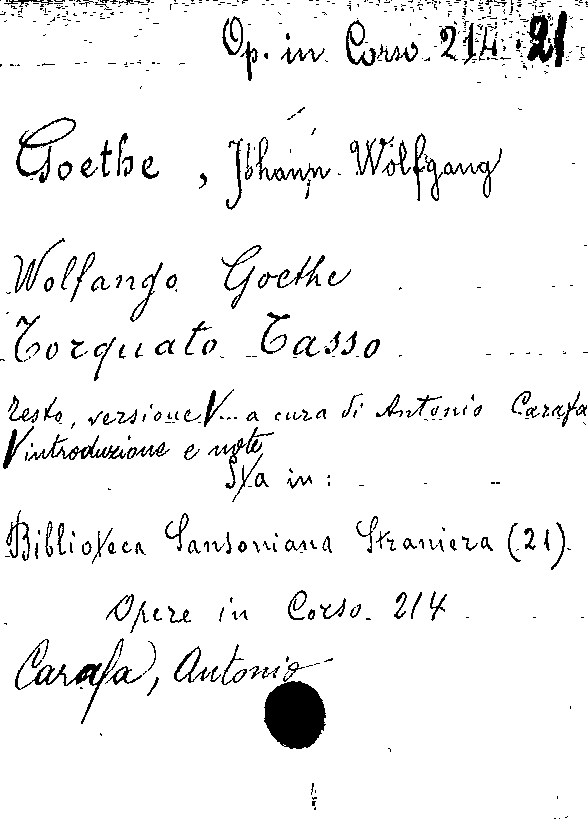 Op. in Corso 214. 21
Goethe, Johann Wolfgang
Wolfango Goethe
Torquato Tasso
Testo, versione V... a cura di Antonio Carafa
V introduzione e note
Sta in:
Biblioteca Sansoniana Straniera (21)
Opere in Corso 214
Carafa, Antonio